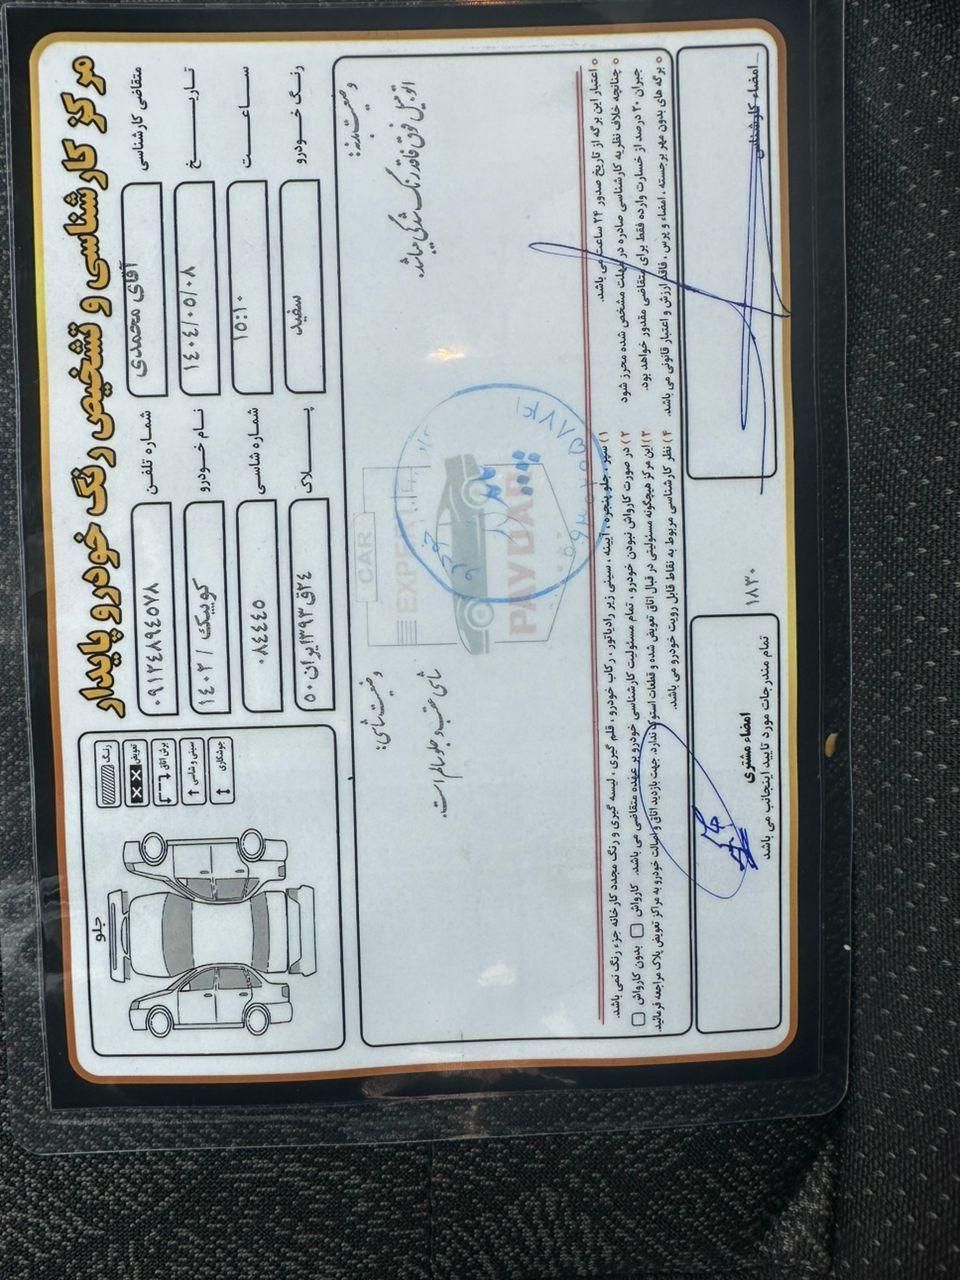 مرکز کارشناسی و تشخیص رنگ خودرو پایدار
متقاضی کارشناسی
آقای محمدی
شماره تلفن
۰۹۱۲۴۸۹۴۵۷۸
تاریخ
۱۴۰۴/۰۵/۰۸
نام خودرو
کوییک / ۱۴۰۲
ساعت
۱۵:۱۰
شماره شاسی
۰۸۴۴۴۵
رنگ خودرو
سفید
پلاک
۲۴ق۳۹۳ایران۵۰
جلو
رنگ
تعویض
برش اتاق
سینی و شاسی
جوشکاری
وضعیت بدنه:
اتومبیل فوق فاقد رنگ شدگی میباشد.
وضعیت شاسی:
شاسی عقب و جلو سالم است.
CAR
EXPERT
PAYDAR
اعتبار این برگه از تاریخ صدور ۲۴ ساعت می باشد.
چنانچه خلاف نظریه کارشناسی صادره در مهلت مشخص شده محرز شود
جبران ۲۰ درصد از خسارت وارده فقط برای متقاضی مقدور خواهد بود.
برگه های بدون مهر برجسته ، امضاء و پرس ، فاقد ارزش و اعتبار قانونی می باشد.
۱) سپر ، جلو پنجره ، آیینه ، سینی زیر رادیاتور ، رکاب خودرو ، قلم گیری ، لیسه گیری و رنگ مجدد کارخانه جزء رنگ نمی باشد.
۲) در صورت کارواش نبودن خودرو ، تمام مسئولیت کارشناسی خودرو بر عهده متقاضی می باشد. کارواش بدون کارواش
۳) این مرکز هیچگونه مسئولیتی در قبال اتاق تعویض شده و قطعات استوک ندارد. جهت بازدید اتاق و اصالت خودرو به مراکز تعویض پلاک مراجعه فرمائید.
۴) نظر کارشناسی مربوط به نقاط قابل رویت خودرو می باشد.
امضاء کارشناسی
۱۸۳۰
تمام مندرجات مورد تایید اینجانب می باشد
امضاء مشتری